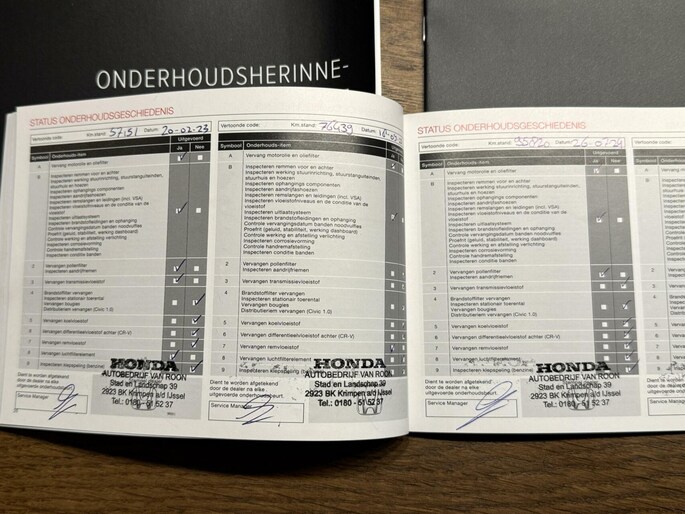 ONDERHOUDSHERINNE-
STATUS ONDERHOUDSGESCHIEDENIS
Vertoonde code: Km.stand: 57151 Datum: 20-02-23
Uitgevoerd
Symbool Onderhouds-item Ja Nee
A Vervang motorolie en oliefilter
B Inspecteren remmen voor en achter
Inspecteren werking stuurinrichting, stuurstangeinden,
stuurhuis en hoezen
Inspecteren ophangings componenten
Inspecteren aandrijfashoezen
Inspecteren remslangen en leidingen (incl. VSA)
Inspecteren vloeistofniveaus en de conditie van de
vloeistof
Inspecteren uitlaatsysteem
Inspecteren brandstofleidingen en ophanging
Controle vervangingsdatum banden noodkoffer
Proefrit (geluid, stabiliteit, werking dashboard)
Controle werking en afstelling verlichting
Inspecteren corrosievorming
Controle handremafstelling
Inspecteren conditie banden
2 Vervangen pollenfilter
Inspecteren aandrijfriemen
3 Vervangen transmissievloeistof
4 Brandstoffilter vervangen
Inspecteren stationair toerental
Vervangen bougies
Distributieriem vervangen (Civic 1.0)
5 Vervangen koelvloeistof
6 Vervangen differentieelvloeistof achter (CR-V)
7 Vervangen remvloeistof
8 Vervangen luchtfilterelement
9 Inspecteren klepspeling (benzine)
Dient te worden afgetekend
door de dealer na elke
uitgevoerde onderhoudsbeurt.
Service Manager
HONDA
AUTOBEDRIJF VAN ROON
Stad en Landschap 39
2923 BK Krimpen a/d IJssel
Tel.: 0180 - 51 52 37
Vertoonde code: Km.stand: 76439 Datum:
Symbool Onderhouds-item Ja
A Vervang motorolie en oliefilter
B Inspecteren remmen voor en achter
Inspecteren werking stuurinrichting, stuurstangeinden,
stuurhuis en hoezen
Inspecteren ophangings componenten
Inspecteren aandrijfashoezen
Inspecteren remslangen en leidingen (incl. VSA)
Inspecteren vloeistofniveaus en de conditie van de
vloeistof
Inspecteren uitlaatsysteem
Inspecteren brandstofleidingen en ophanging
Controle vervangingsdatum banden noodkoffer
Proefrit (geluid, stabiliteit, werking dashboard)
Controle werking en afstelling verlichting
Inspecteren corrosievorming
Controle handremafstelling
Inspecteren conditie banden
2 Vervangen pollenfilter
Inspecteren aandrijfriemen
3 Vervangen transmissievloeistof
4 Brandstoffilter vervangen
Inspecteren stationair toerental
Vervangen bougies
Distributieriem vervangen (Civic 1.0)
5 Vervangen koelvloeistof
6 Vervangen differentieelvloeistof achter (CR-V)
7 Vervangen remvloeistof
8 Vervangen luchtfilterelement
9 Inspecteren klepspeling (benzine)
Dient te worden afgetekend
door de dealer na elke
uitgevoerde onderhoudsbeurt.
Service Manager
HONDA
AUTOBEDRIJF VAN ROON
Stad en Landschap 39
2923 BK Krimpen a/d IJssel
Tel.: 0180 - 51 52 37
STATUS ONDERHOUDSGESCHIEDENIS
Vertoonde code: Km.stand: Datum: 26-07-24
Uitgevoerd
Symbool Onderhouds-item Ja Nee
A Vervang motorolie en oliefilter
B Inspecteren remmen voor en achter
Inspecteren werking stuurinrichting, stuurstangeinden,
stuurhuis en hoezen
Inspecteren ophangings componenten
Inspecteren aandrijfashoezen
Inspecteren remslangen en leidingen (incl. VSA)
Inspecteren vloeistofniveaus en de conditie van de
vloeistof
Inspecteren uitlaatsysteem
Inspecteren brandstofleidingen en ophanging
Controle vervangingsdatum banden noodkoffer
Proefrit (geluid, stabiliteit, werking dashboard)
Controle werking en afstelling verlichting
Inspecteren corrosievorming
Controle handremafstelling
Inspecteren conditie banden
2 Vervangen pollenfilter
Inspecteren aandrijfriemen
3 Vervangen transmissievloeistof
4 Brandstoffilter vervangen
Inspecteren stationair toerental
Vervangen bougies
Distributieriem vervangen (Civic 1.0)
5 Vervangen koelvloeistof
6 Vervangen differentieelvloeistof achter (CR-V)
7 Vervangen remvloeistof
8 Vervangen luchtfilterelement
9 Inspecteren klepspeling (benzine)
Dient te worden afgetekend
door de dealer na elke
uitgevoerde onderhoudsbeurt.
Service Manager
HONDA
AUTOBEDRIJF VAN ROON
Stad en Landschap 39
2923 BK Krimpen a/d IJssel
Tel.: 0180 - 51 52 37
Vertoonde
Symbool Onder
A Vervan
B
2
3
4
5
6
7
8
9
Dient te
door de
uitgevoerde
Service